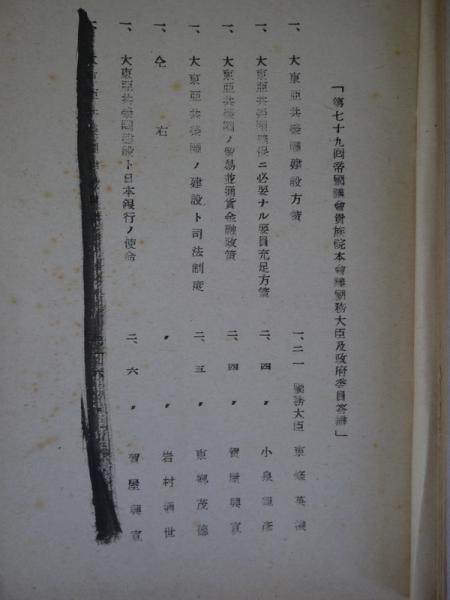 「第七十九囘帝國議會貴族院本會議國務大臣及政府委員答辯」
一、大東亞共榮圈建設方策 一、二一 國務大臣 東條英機
一、大東亞共榮圈建設ニ必要ナル要員充足方策 二、四 〃 小泉親彥
一、大東亞共榮圈ノ貿易並通貨金融政策 二、四 〃 賀屋興宣
一、大東亞共榮圈ノ建設ト司法制度 二、五 〃 東鄕茂德
一、仝右 〃 岩村通世
一、大東亞共榮圈建設ト日本銀行ノ使命 二、六 〃 賀屋興宣